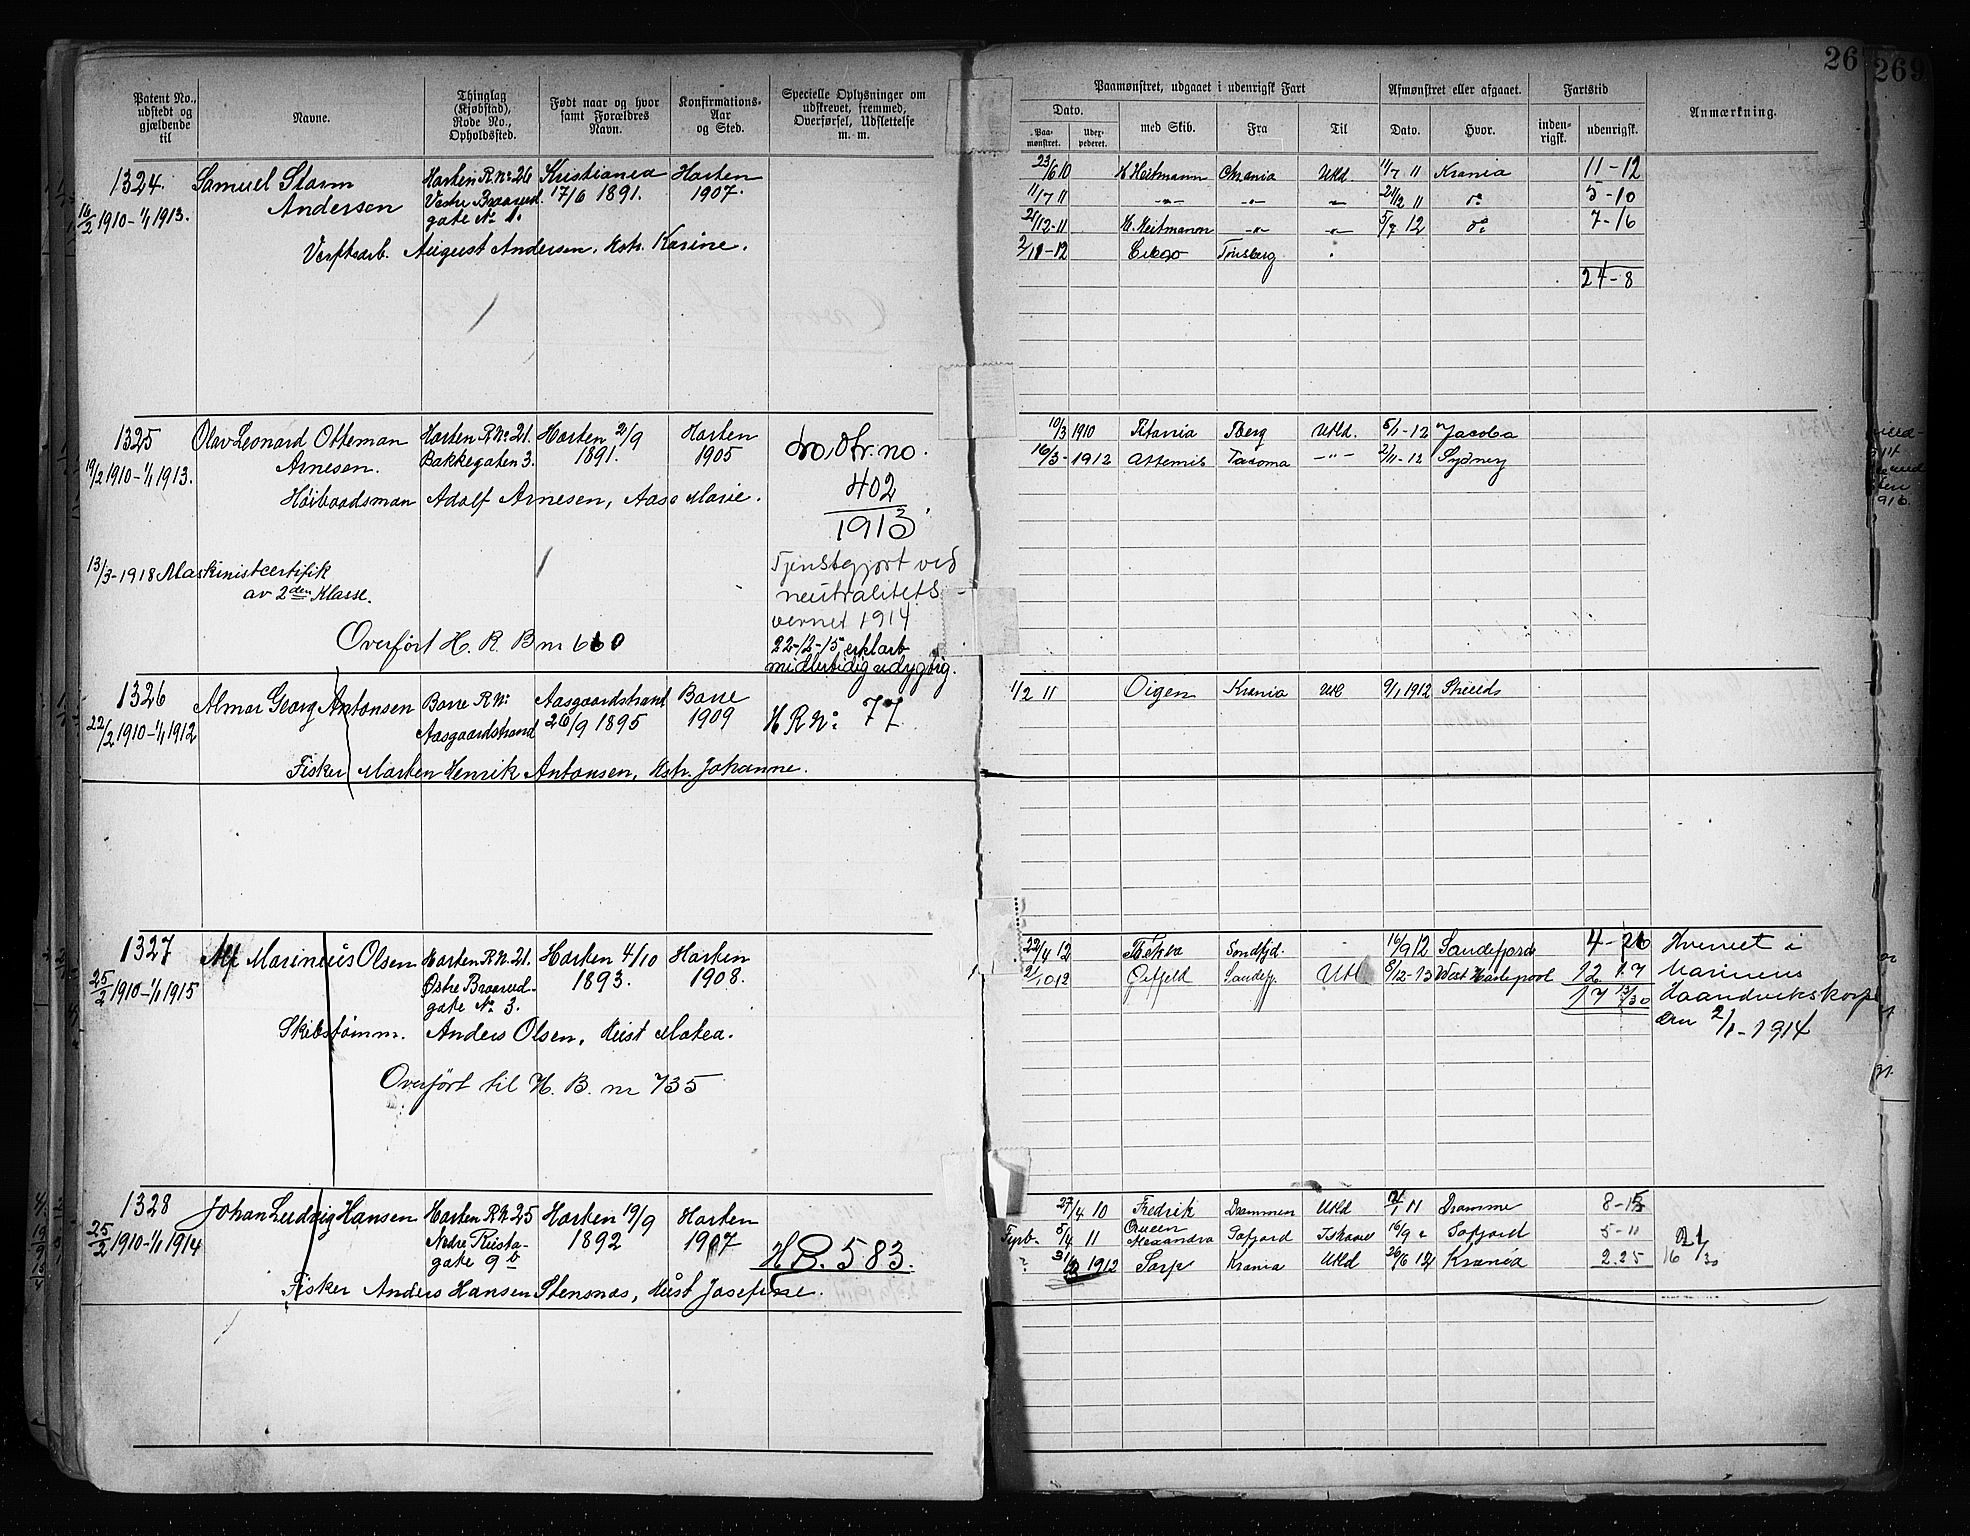 26
269
Patent No., udstedt og gjældende til
Navne.
Thinglag (Kjøbstad), Rode No., Opholdssted.
Født naar og hvor samt Forældres Navn.
Konfirmations-Aar og Sted.
Specielle Oplysninger om udskrevet, fremmed, Overførsel, Udslettelse m. m.
Paamønstret, udgaaet i udenrigsk Fart
Afmønstret eller afgaaet.
Fartstid
Anmærkning.
Dato.
Paa-mønstret.
med Skib.
Fra
Til
Dato.
Hvor.
inden-rigsk.
udenrigsk.
1324.
16/2 1910-1/1 1913.
Samuel Storm
Andersen
Horten R. No 26
Vestre Braarud-
gate No 1.
Kristiania
17/6 1891.
Horten
1907.
Verftsarb. August Andersen, Hstr. Karine.
23/6 10 H Heitmann Chrania Utld. 11/7 11 Krania 11-12
11/7 11 -„- -„- „ 21/12 11 do 5-10
21/12-11 H. Heitmann -„- -„- 5/7 12 do 7-16
2/11-12 Tønsberg
24-8
1325
19/2 1910-1/1 1913.
Olav Leonard Otteman
Arnesen.
Horten R No 21.
Bakkegaten 3.
Horten 2/9
1891.
Horten
1905
Høibaadsman Adolf Arnesen, Aase Marie.
402
1913
13/3-1918 Maskinistcertifik
av 2den Klasse.
Tjenstgjort ved
neutralitets-
vernet 1914
22-12-15 erklært
midlertidig udygtig.
Overført H. R. B nr 660
10/3 1910 Titania Tberg Utld. 5/1-12 Jacoba
16/3-1912 Artemis Tacoma -„- 2/11-12 Sydney
1326
22/2 1910-1/1 1912
Almar Georg Antonsen
Borre R No
Aasgaardstrand
Aasgaardstrand
26/9 1895
Borre
1909
H R No 77
Fisker Morten Henrik Antonsen, Hstr. Johanne.
1/2 11 Oigen Krania Utl 9/1 1912 Shields
1327
25/2 1910-1/1 1915
Alf Marinius Olsen
Horten R. N. 21.
Østre Braarud-
gate No 3.
Horten 4/10
1893.
Horten
1908.
Skibstømm. Anders Olsen, Hust Matea.
Overført til H. B. nr 735
22/4 12 Thekla 16/9 12 Sandefjord 4-26
2/10 12 Sandefj. Utl 5/12-13 West Hartlepool 12 17
17 13/30
Hvervet i
Marinens
Haandverkskorps
den 2/1-1914
1328
25/2 1910-1/1 1914
Johan Ludvig Hansen
Horten R. N. 25
Nedre Keisa-
gate 9b
Horten 19/9
1892
Horten
1907
H B. 583.
Fisker Anders Hansen Stensnæs, Hust Josefine.
27/4 10 Fredrik Drammen Utld Dramme 8-15
Fyrb. 5/4 11 Queen Alexandra Ishavet 16/9 5-11
1912 Sarp Krania Utld 26/6 12 Krania 2.25
16 21/30